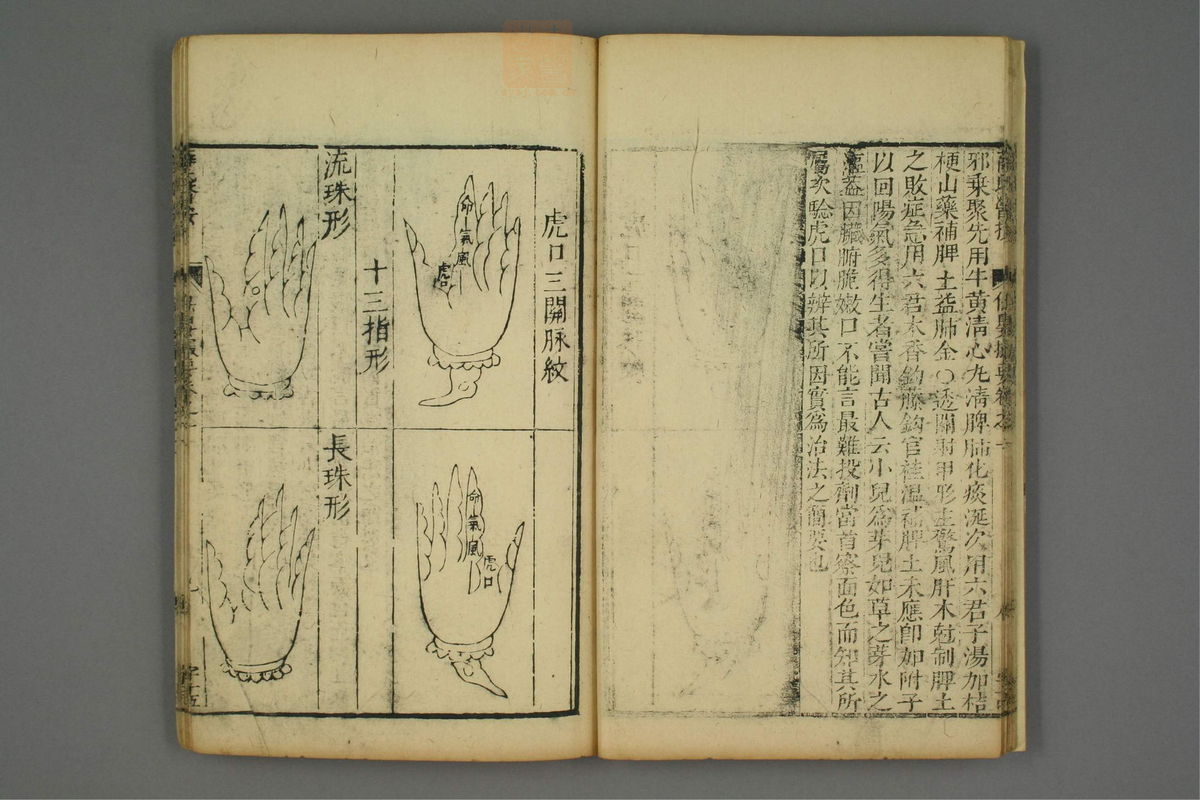 邪乘聚先用牛黄淸心丸淸脾肺化痰涎次用六君子湯加桔
梗山藥補脾土益肺金○透關射甲形主驚風肝木尅制脾土
之敗症急用六君木香鈎藤鈎官桂溫補脾土未應卽加附子
以回陽氣多得生者嘗聞古人云小兒爲芽兒如草之芽水之
漚蓋因臟腑脆嫩口不能言最難投劑當首察面色而知其所
屬次驗虎口以辨其所因實爲治法之簡要也
虎口三關脉紋
命氣風
虎口
命氣風
虎口
十三指形
流珠形
長珠形